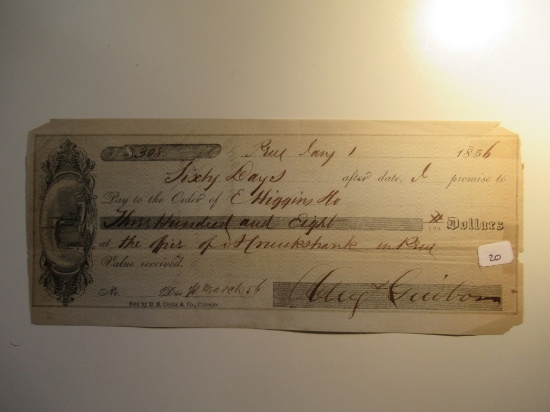 $308 Peru Jany 1 1856
Sixty Days after date, I promise to
Pay to the Order of E Higgins
Three Hundred and Eight /100 Dollars
at the offis of in Peru
Value received.
No. Due March 56
Sold by D. B. Cooke & Co., Chicago.
20